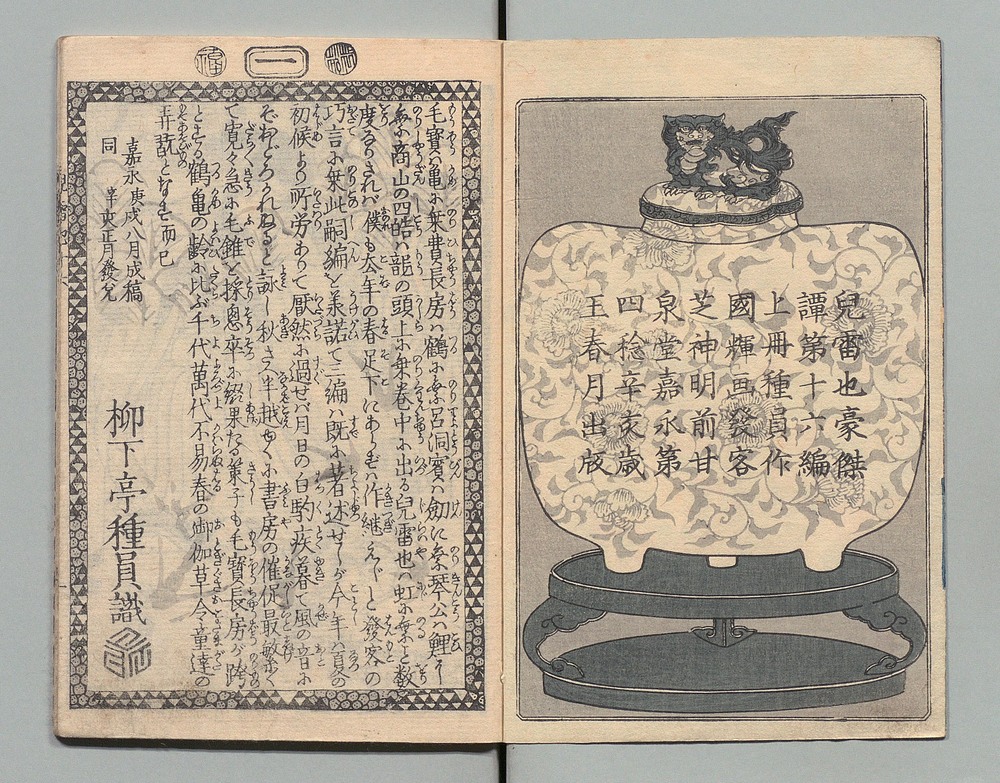 兒雷也豪傑
譚第十六編
上冊種員作
國輝画發客
芝神明前甘
泉堂嘉永第
四稔辛亥歳
王春月出版
一
毛寶ハ亀に乗費長房ハ鶴に乗呂洞賓ハ劔に乗琴公ハ鯉に
商山の四皓ハ龍の頭上に乗巻中に出る兒雷也ハ虹に乗と
されバ僕も去年の春足下にあらずバ作継えじと發客の
巧言に乗此嗣編を羕諾て三編ハ既に著述せしが今年ハ夏の
初候より所労ありて厭然に過せバ月日の白駒疾暮て風の音に
ぞおどろかれぬると詠し秋さへ半越ゆくに書房の催促最繁く
て寛々急に毛錐を採怱卒に綴果たる策子も毛寶長房が跨
とする鶴亀の齢に比ぶ千代萬代不易春の御伽草令童達の
弄翫となすを而已
嘉永庚戌八月成稿
同 辛亥正月發兌
柳下亭種員識